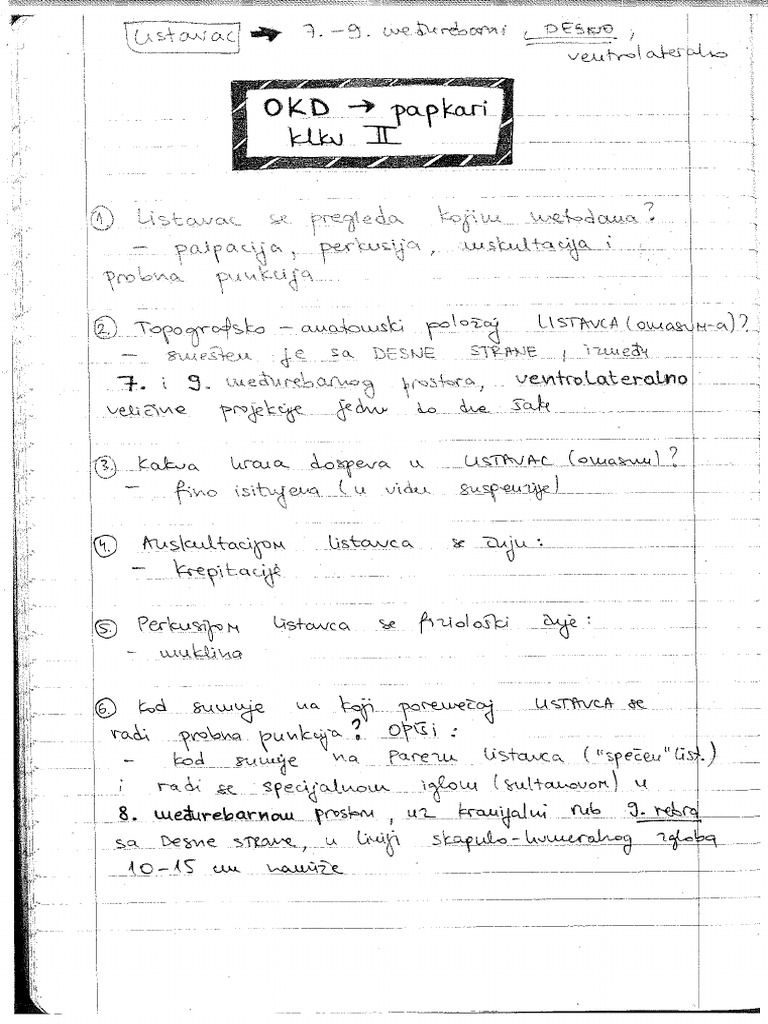 Listavac → 7.-9. međurebarni, DESNO,
ventrolateralno
OKD → papkari
klkv II
1. Listavac se pregleda kojim metodama?
- palpacija, perkusija, auskultacija i
probna punkcija
2. Topografsko-anatomski položaj LISTAVCA (omasum-a)?
- smešten je sa DESNE STRANE, između
7. i 9. međurebarnog prostora, ventrolateralno
veličine projekcije jedne do dve šake
3. Kakva hrana dospeva u LISTAVAC (omasum)?
- fino isitnjena (u vidu suspenzije)
4. Auskultacijom listavca se čuju:
- krepitacije
5. Perkusijom listavca se fiziološki čuje:
- muklina
6. Kod sumnje na koji poremećaj LISTAVCA se
radi probna punkcija? Opiši:
- kod sumnje na parezu listavca ("spečen" list.)
i radi se specijalnom iglom (sultanovom) u
8. međurebarnom prostoru, uz kranijalni rub 9. rebra
sa DESNE STRANE, u liniji skapulo-humeralnog zgloba
10-15 cm naniže